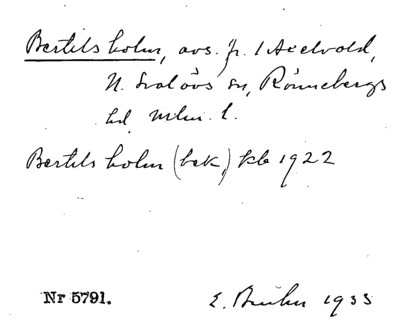 Bertilsholm, avs. fr. 1 Axelvold,
N. Svalövs sn, Rönnebergs
hd Mlm. l.
Bertilsholm (bek.) kb 1922
Nr 5791. E. Bruhn 1933